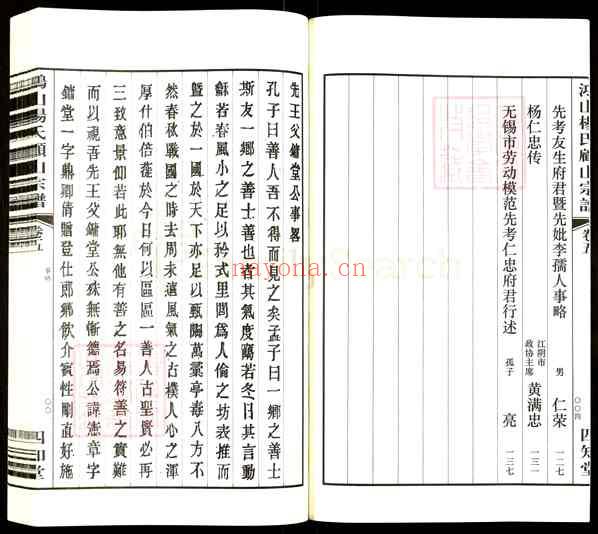 鸿山杨氏顾山宗谱 卷五 〇〇四 四知堂
先考友生府君暨先妣李孺人事略 男 仁荣 一二七
杨仁忠传 江阴市政协主席 黄满忠 一三一
无锡市劳动模范先考仁忠府君行述 孤子 亮 一三七
先王父鏞堂公事畧
孔子曰善人吾不得而見之矣孟子曰一鄉之善士
斯友一鄉之善士善也者其氣度靄若冬日其言動
穌若春風小之足以矜式里閭為人倫之坊表推而
暨之於一國於天下亦足以甄陶萬彙亭毒八方不
然春秋戰國之時去周未遠風氣之古樸人心之渾
厚什伯倍蓰於今日何以區區一善人古聖賢必再
三致意景仰若此哉無他有善之名易符善之實難
而以視吾先王父鏞堂公殊無慚德焉公諱憲章字
鏞堂一字鼎卿倩贈登仕郎鄉飲介賓性剛直好施
鴻山楊氏顧山宗譜 卷五 四知堂
nayona.cn